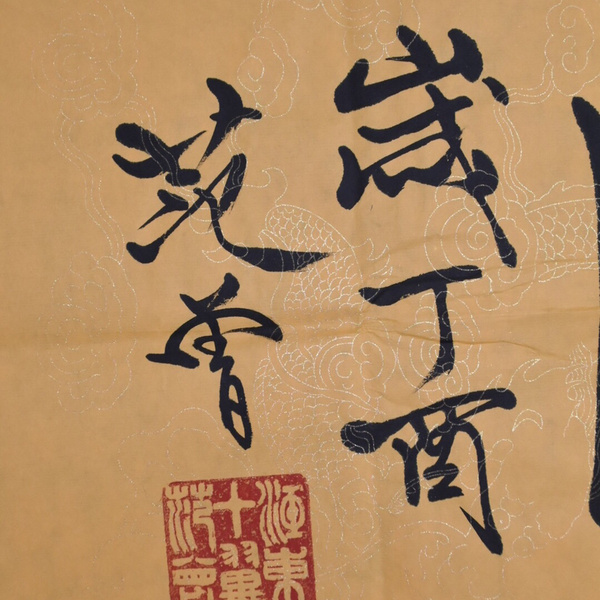 歲丁酉
范曾
江東
十翼
范曾